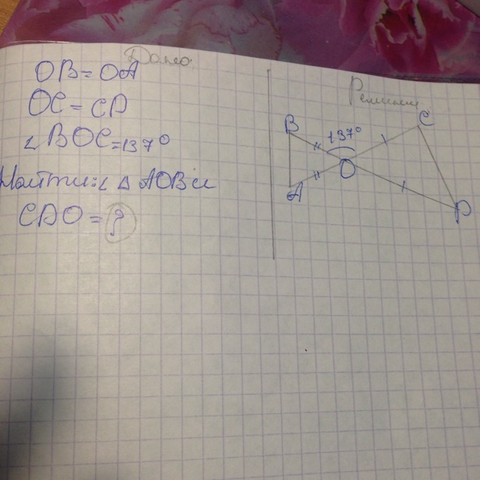 Дано
OB = OA
OC = CD
∠BOC = 137°
Найти: ∠ △ AOB и
CDO = ?
Решение
B
137°
C
O
A
D